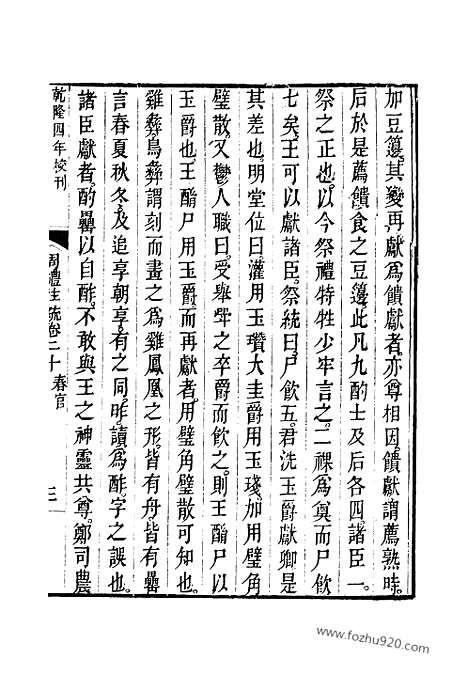 加豆籩其變再獻爲饋獻者亦尊相因饋獻謂薦熟時
后於是薦饋食之豆籩此凡九酌王及后各四諸臣一
祭之正也以今祭禮特牲少牢言之二祼爲奠而尸飲
七矣王可以獻諸臣祭統曰尸飲五君洗玉爵獻卿是
其差也明堂位曰灌用玉瓚大圭爵用玉琖加用璧角
璧散又鬱人職曰受舉斝之卒爵而飲之則王酳尸以
玉爵也王酳尸用玉爵而再獻者用璧角璧散可知也
雞彝鳥彝謂刻而畫之爲雞鳳凰之形皆有舟皆有罍
言春夏秋冬及追享朝享有之同昨讀爲酢字之誤也
諸臣獻者酌罍以自酢不敢與王之神靈共尊鄭司農
乾隆四年校刊
周禮注疏卷二十 春官
三
www.fozhu920.com